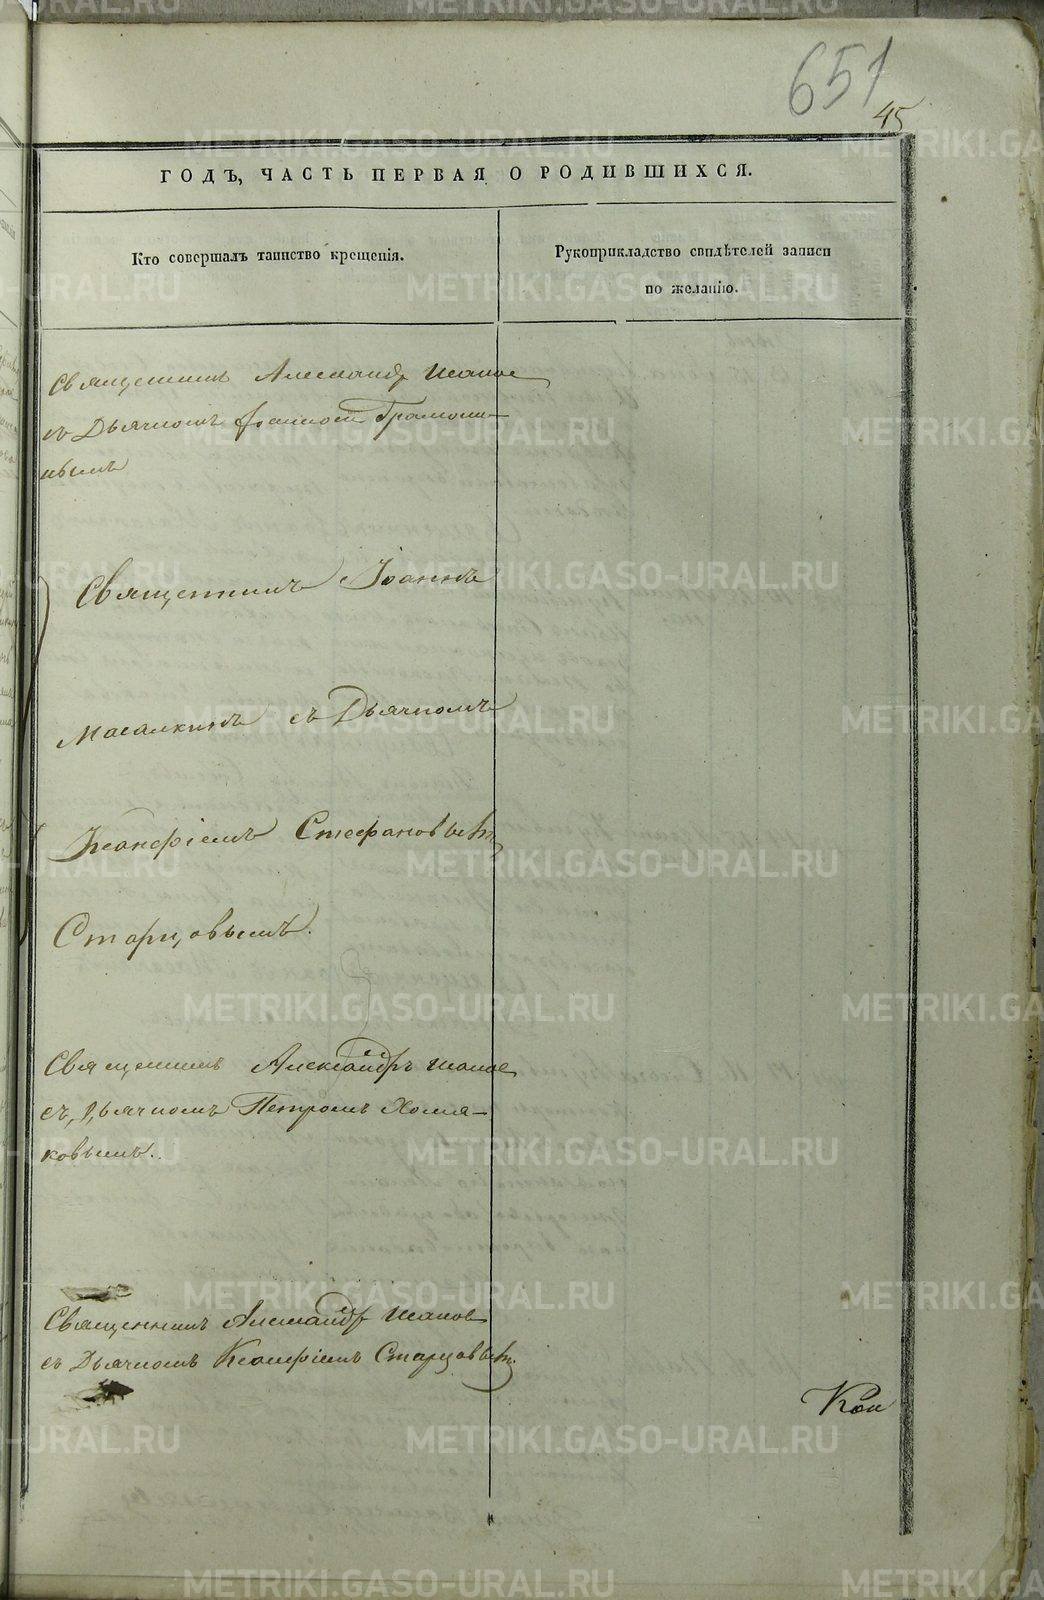 651
45
ГОДЪ, ЧАСТЬ ПЕРВАЯ О РОДИВШИХСЯ.
Кто совершалъ таинство крещенія.
Рукоприкладство свидѣтелей записи
по желанію.
Священникъ Александръ
съ Дьячкомъ
Священникъ Іоаннъ
Масалкинъ съ Дьячкомъ
Ксанфіемъ Стефановымъ
Старцовымъ.
Священникъ Александръ
съ Дьячкомъ Петромъ Холмя-
ковымъ.
Священникъ Александръ
съ Дьячкомъ Ксанфіемъ Старцовымъ.
METRIKI.GASO-URAL.RU